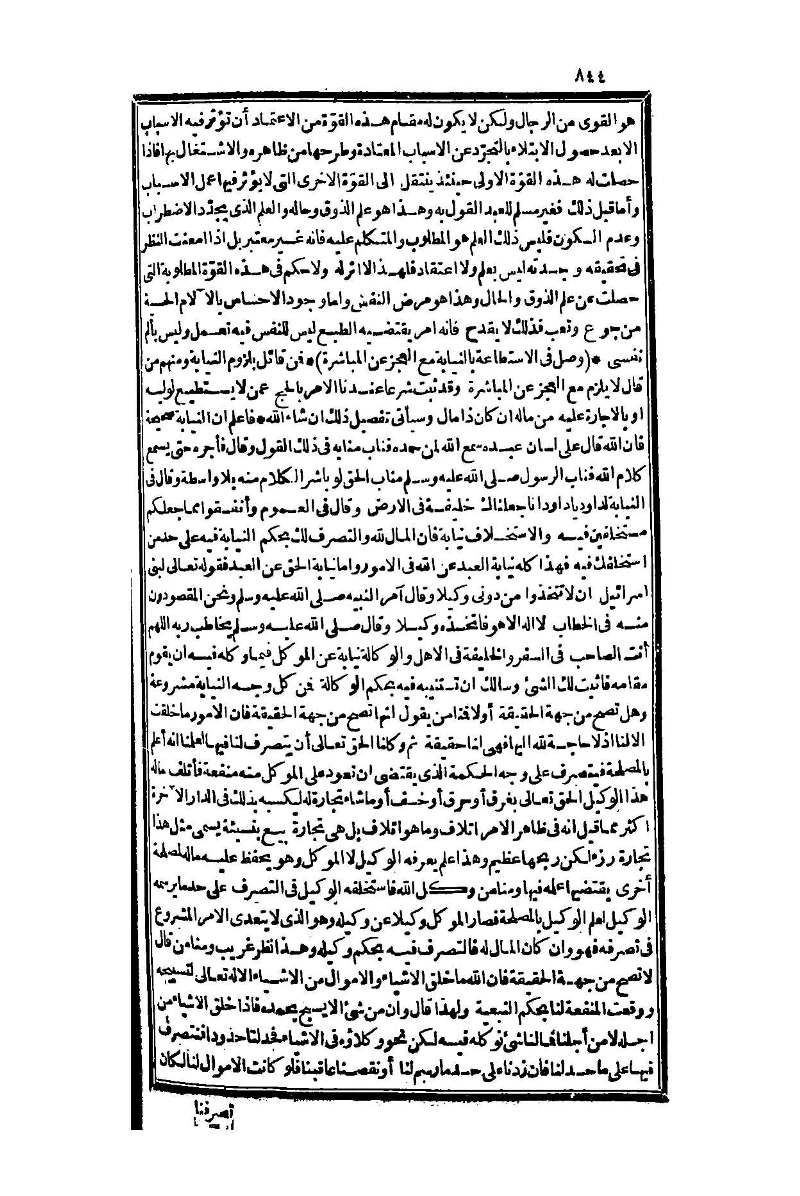 ٨٤٤
هو القوى من الرجال ولكن لا يكون له مقام هذه القوّة من الاعتماد أن تؤثر فيه الاسباب
الا بعد حصول الابتلاء بالتجرّد عن الاسباب المعتادة وطرحها من ظاهره والاشتغال بها فاذا
حصلت له هذه القوة الاولى حينئذ ينتقل الى القوّة الاخرى التى لا يؤثر فيها عمل الاسباب
وأما قبل ذلك فغير مسلم للعبد القول به وهذا هو علم الذوق وحاله والعلم الذى يجدّد الاضطراب
وعدم السكون فليس ذلك العلم هو المطلوب والمتكلم عليه فانه غير معتبر بل اذا امعنت النظر
فى تحقيقه وجدته ليس بعلم ولا اعتقاد فلهذا لا اثر له ولا حكم فى هذه القوّة المطلوبة التى
حصلت عن علم الذوق والحال وهذا هو مرض النفس واما وجود الاحساس بالآلام الحسة
من جوع وتعب فذلك لا يقدح فانه امر يقتضيه الطبع ليس للنفس فيه تعمل وليس بألم
نفسى *(وصل فى الاستطاعة بالنيابة مع العجز عن المباشرة)* فمن قائل بلزوم النيابة ومنهم من
قال لا يلزم مع العجز عن المباشرة وقد ثبت شرعا عندنا الامر بالحج عمن لا يستطيع لوليه
او بالاجارة عليه من ماله ان كان ذا مال وسيأتى تفصيل ذلك ان شاء الله * فاعلم ان النيابة صحيحة
فان الله قال على لسان عبده سمع الله لمن حمده فناب منابه فى ذلك القول وقال فأجره حتى يسمع
كلام الله فناب الرسول صلى الله عليه وسلم مناب الحق لو باشر الكلام منه بلا واسطة وقال فى
النيابة لداود يا داود انا جعلناك خليفة فى الارض وقال فى العموم وأنفقوا مما جعلكم
مستخلفين فيه والاستخلاف نيابة فان المال لله والتصرف لك بحكم النيابة فيه على حد من
استخلفك فيه فهذا كله نيابة العبد عن الله فى الامور واما نيابة الحق عن العبد فقوله تعالى لبنى
اسرائيل ان لا تتخذوا من دونى وكيلا وقال آمر النبيه صلى الله عليه وسلم ونحن المقصودون
منه فى الخطاب لا اله الا هو فاتخذه وكيلا وقال صلى الله عليه وسلم يخاطب ربه اللهم
أنت الصاحب فى السفر والخليفة فى الاهل والوكالة نيابة عن الموكل فيما وكله فيه ان يقوم
مقامه فاثبت لك الشئ وسألك ان تستنيبه فيه بحكم الوكالة فمن كل وجه النيابة مشروعة
وهل تصح من جهة الحقيقة أو لا فمنا من يقول انها تصح من جهة الحقيقة فان الامور ما خلقت
الا لنا اذ لا حاجة لله اليها فهى لنا حقيقة ثم وكلنا الحق تعالى أن يتصرف لنا فيها لعلمنا انه أعلم
بالمصلحة فيتصرف على وجه الحكمة الذى يقتضى ان تعود على الموكل منه منفعة فأتلف ماله
هذا الوكيل الحق تعالى بغرق أو حرق أو خسف أو ما شاء تجارة له ليكسبه بذلك فى الدار الآخرة
اكثر مما قيل انه فى ظاهر الامر اتلاف وما هو اتلاف بل هى تجارة بيع بنسيئة يسمى مثل هذا
تجارة رزء لكن ربحها عظيم وهذا علم يعرفه الوكيل لا الموكل وهو يحفظ عليه ماله لمصلحة
أخرى يقتضيها علمه فيها ومنا من وكل الله فاستخلفه الوكيل فى التصرف على حد ما يرسمه
الوكيل لعلم الوكيل بالمصلحة فصار الموكل وكيلا عن وكيله وهو الذى لا يتعدى الامر المشروع
فى تصرفه فهو وان كان المال له فالتصرف فيه بحكم وكيله وهذا نظر غريب ومنا من قال
لا تصح من جهة الحقيقة فان الله ما خلق الاشياء والاموال من الاشياء الا له تعالى لتسبيحه
ووقعت المنفعة لنا بحكم التبعية ولهذا قال وان من شئ الا يسبح بحمده فاذا خلق الاشياء من
اجله لا من أجلنا فما لنا شئ نوكله فيه لكن نحن وكلاؤه فى الاشياء فحد لنا حدودا فنتصرف
فيها على ما حد لنا فان زدنا على حد ما رسم لنا أو نقصنا عاقبنا فلو كانت الاموال لنا لكان
تصرفنا